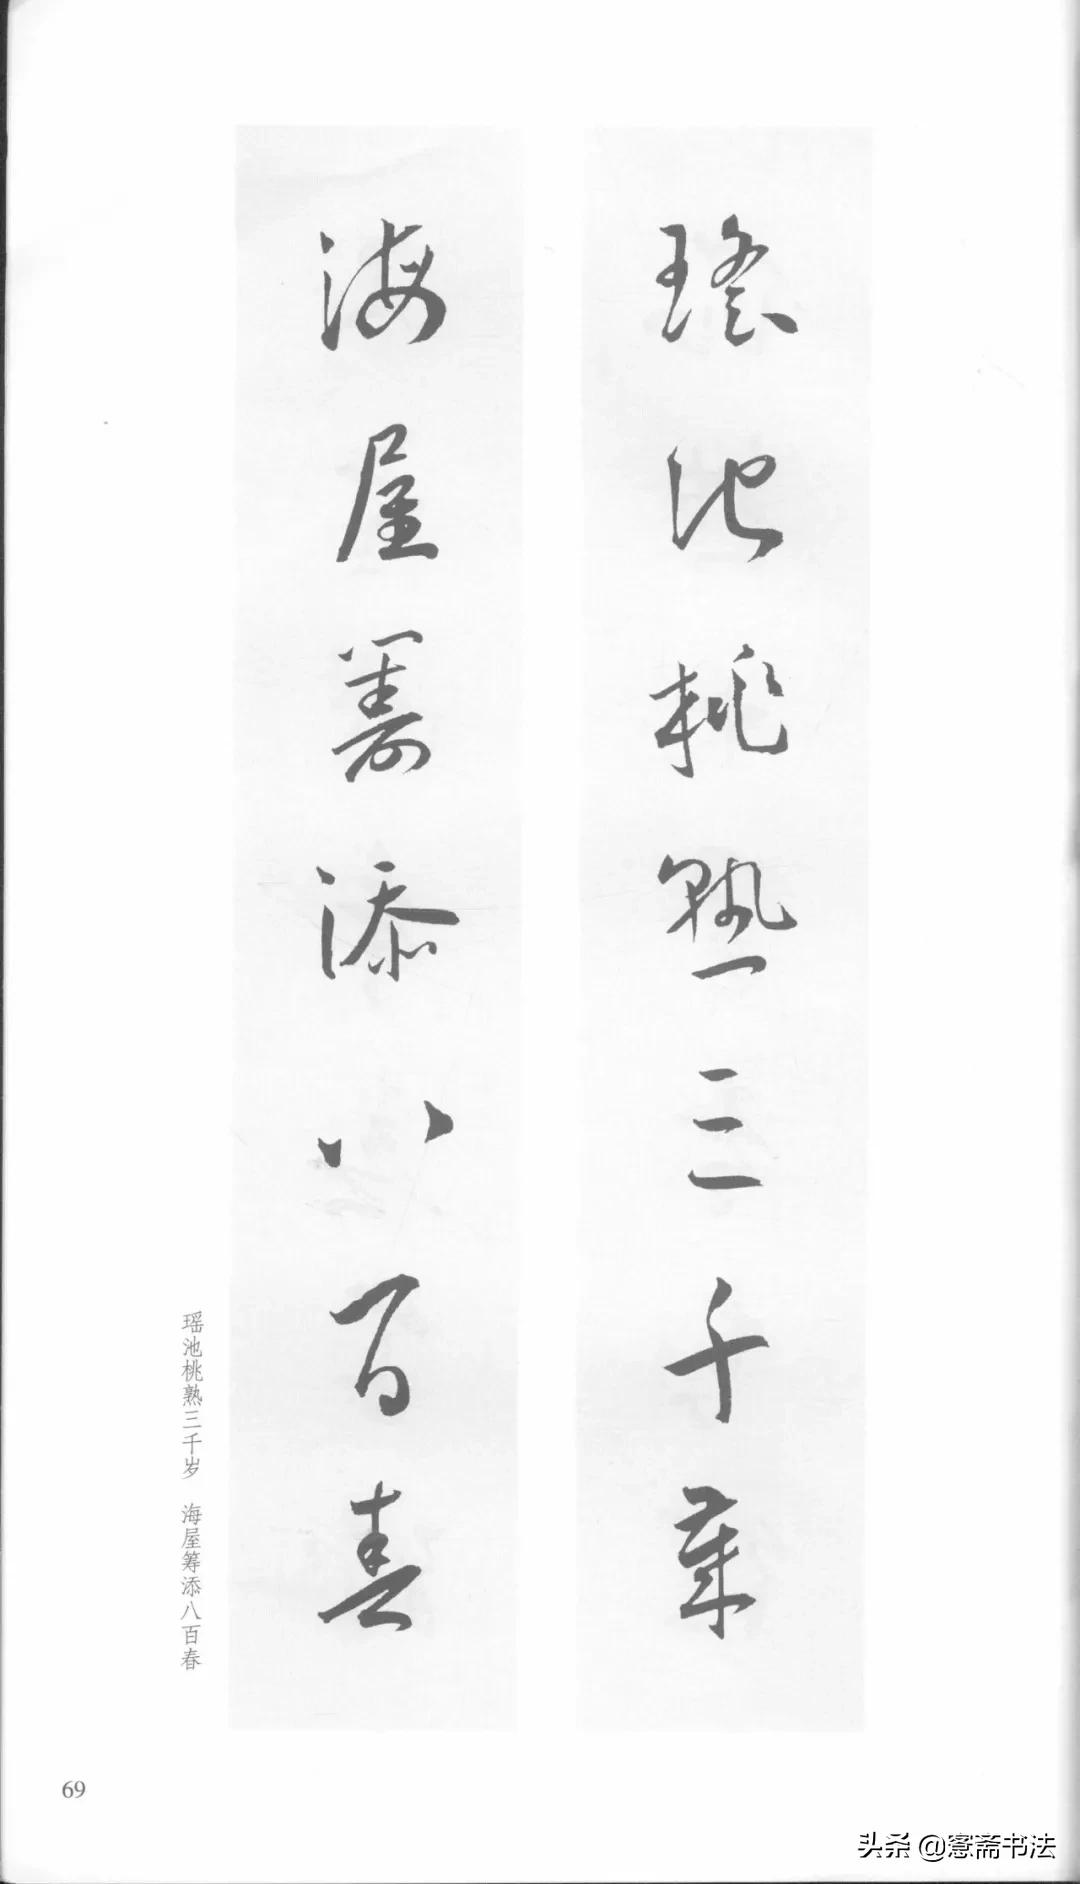 瑶池桃熟三千岁
海屋筹添八百春
瑶池桃熟三千岁　海屋筹添八百春
69
头条 @窓斋书法